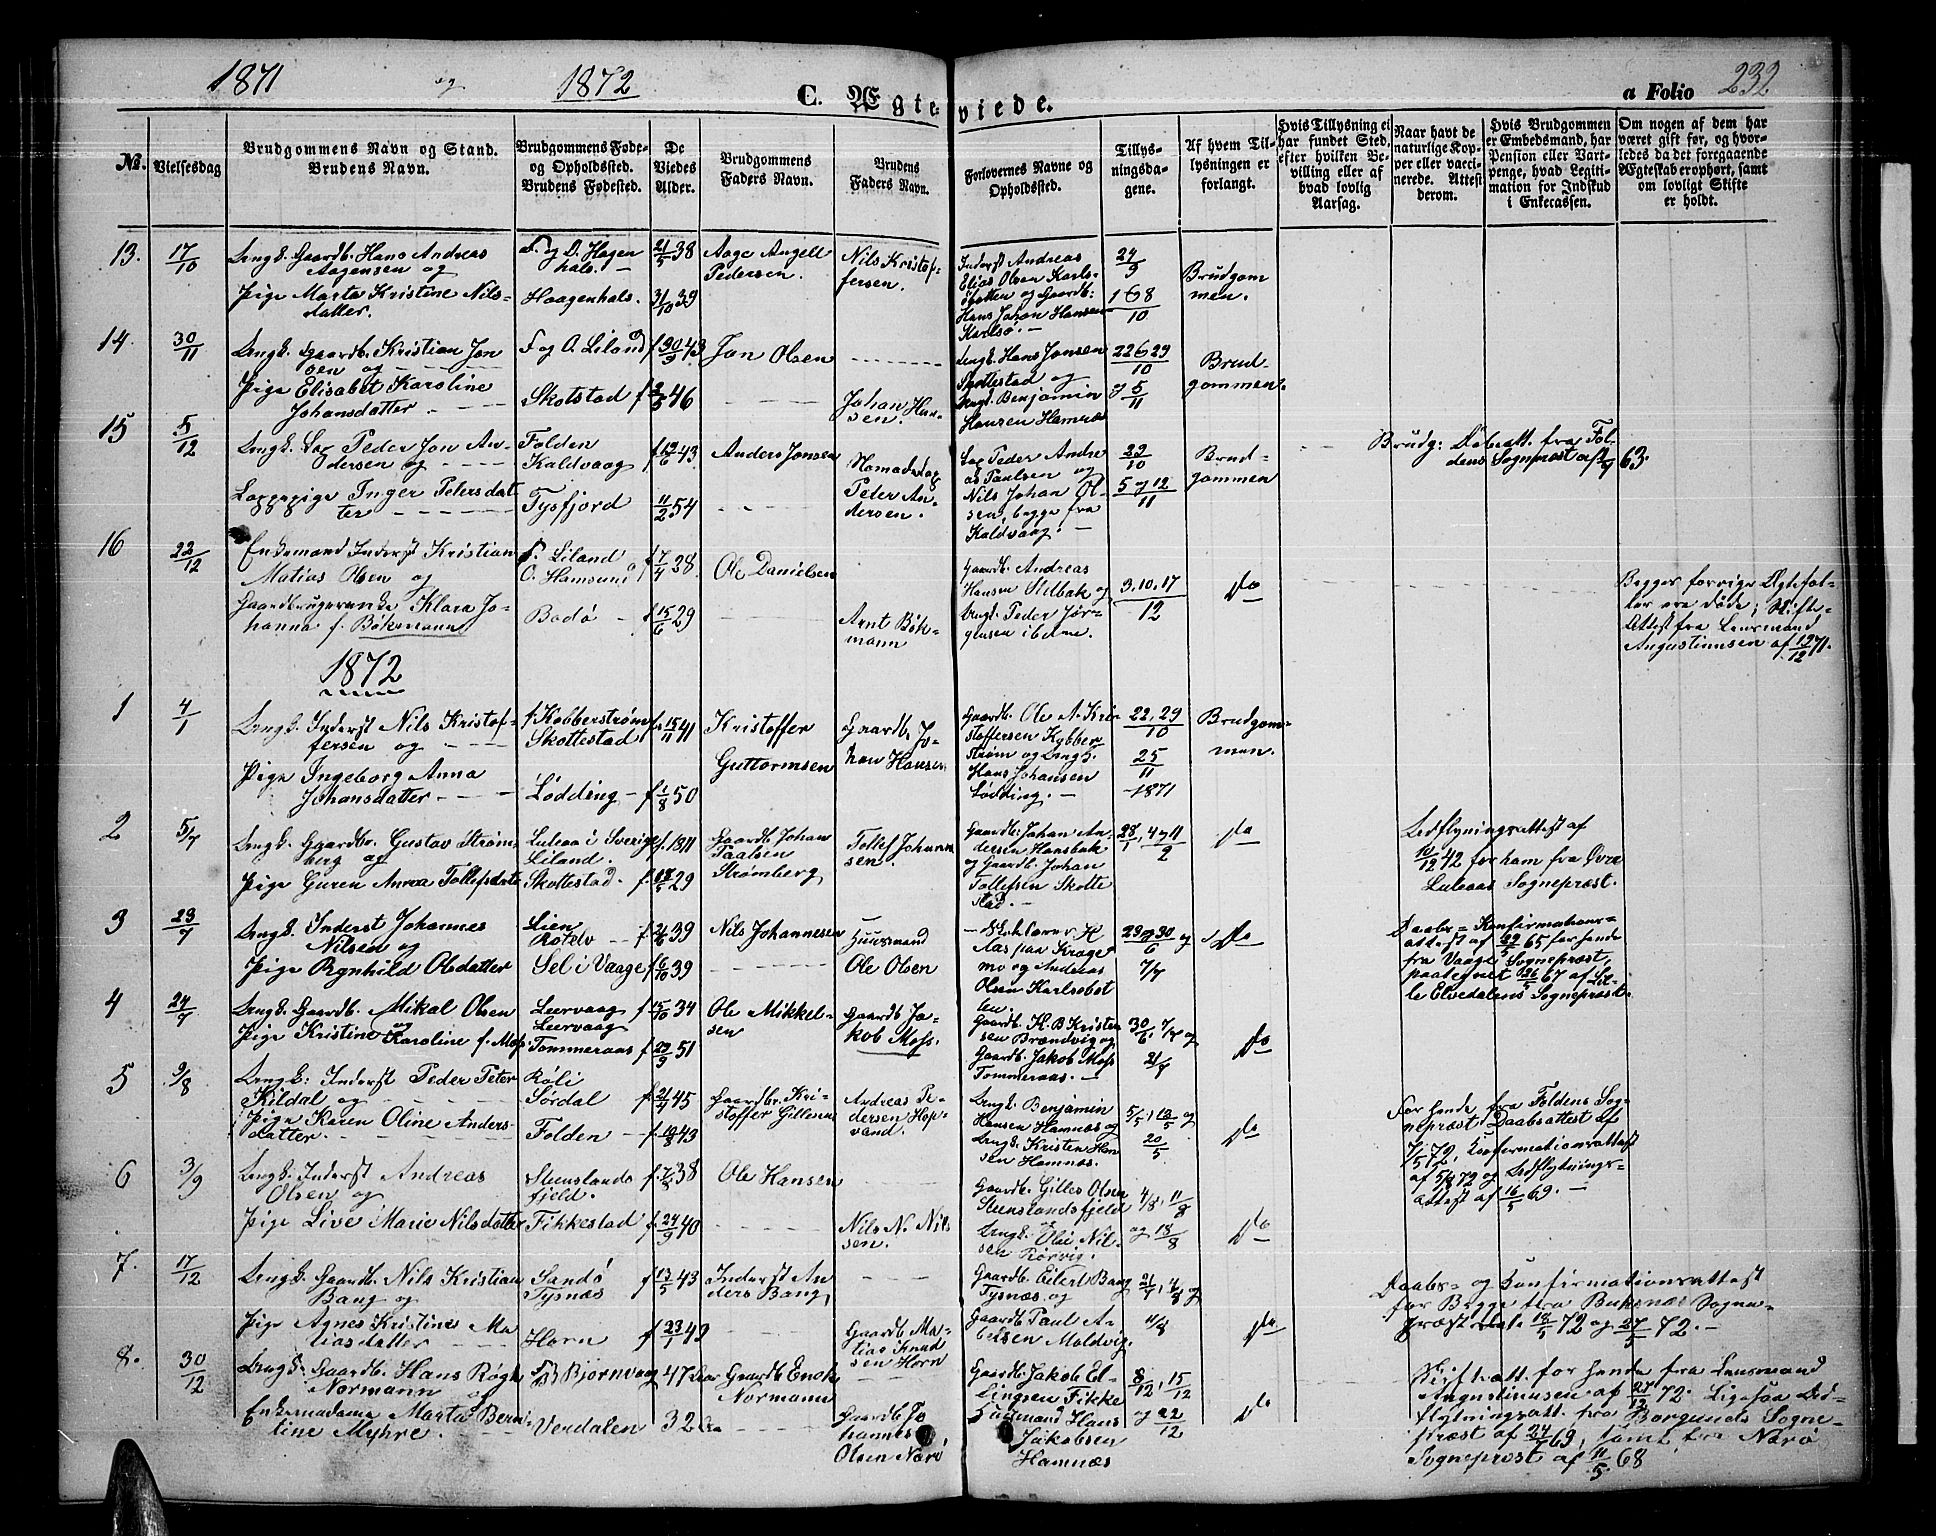 1871 og 1872
C. Ægteviede.
a Folio 232
No.
Vielsesdag
Brudgommens Navn og Stand.
Brudens Navn.
Brudgommens Føde-
og Opholdssted.
Brudens Fødested.
De
Viedes
Alder.
Brudgommens
Faders Navn.
Brudens
Faders Navn.
Forlovernes Navne og
Opholdssted.
Tillys-
ningsda-
gene.
Af hvem Til-
lysningen er
forlangt.
Hvis Tillysning ei
har fundet Sted,
efter hvilken Be-
villing eller af
hvad lovlig
Aarsag.
Naar havt de
naturlige Kop-
per eller vacci-
nerede. Attest
derom.
Hvis Brudgommen
er Embedsmand, har
Pension eller Vart-
penge, hvad Legiti-
mation for Indskud
i Enkecassen.
Om nogen af dem har
været gift før, og hvor-
ledes da det foregaaende
Ægteskab er ophørt, samt
om lovligt Skifte
er holdt.
13. 17/10
Ungk. Gaardb. Hans Andreas
Aagensen og
Pige Marta Kristine Nils-
datter.
F. og O. Hagen
hals.
Haagenhals.
21/5 38
31/10 39
Aage Angell
Pedersen.
Nils Kristof-
fersen.
Inderst Andreas
Elias Olsen Karls-
og Gaardb:
Hans Johan Hansen
Karlsø.
24/9
1 & 8/10
Brudgom
men.
14. 30/11
Ungk. Gaardb. Kristian Jon
sen og
Pige Elisabet Karoline
Johansdatter
F og O. Liland
Skotstad
f 30/9 43
f 2/5 46
Jon Olsen
Johan Han-
sen.
Ungk. Hans Jonsen
Skottestad og
Ungk. Benjamin
Hansen Hamnæs
22 & 29/10
og 5/11
Brud-
gommen.
15 5/12
Ungk. Lap Peder Jon An-
dersen og
Lappepige Inger Petersdat
ter
Folden
Kaldvaag
Tysfjord
43
11/2 54
Anders Jonsen
Nomadelap
Peter An-
dersen.
Lap Peder Andre
as Paulsen og
Nils Johan Ol-
sen, begge fra
Kaldvaag.
29/10
5 og 12/11
Brud-
gommen
Brudg: Døbeatt. fra Fol-
dens Sognepræst af 63.
16 22/12
Enkemand Inderst Kristian
Matias Olsen og
Gaardbrugerenke Klara Jo-
hanna f. Bökmann
F. Liland
O. Hamsund
Bodö
f 7/4 28
f 15/6 29
Ole Danielsen
Arnt Bök-
mann
Gaardb. Andreas
Hansen Stelbak og
Ungk. Peder Jør-
gensen ibdm.
3, 10, 17/12
Do
Begges forrige Ægtefol-
ler ere døde; Skifte-
Attest fra Lensmand
Augustinusen af 19/12 71.
1872
1 4/1
Ungk. Inderst Nils Kristof-
fersen og
Pige Ingeborg Anna
Johansdatter
f Kobberstrøm
Skottestad
Lødding
f. 15/11 41
f 1/8 50
Kristoffer
Guttormsen
Gaardb. Jo-
han Hansen
Gaardb. Ole A. Kri-
stoffersen Kobber-
strøm og Ungk.
Hans Johansen
Lødding.
22, 29/10
25/11
1871
Brudgom-
men.
2 5/7
Ungk. Gaardbr. Gustav Strøm-
berg og
Pige Guren Anna Tollefsdatter
Luleaa i Sverige
Liland.
Skottestad
f. 1811
f. 18/5 29
Gaardb Johan
Paalsen
Strømberg
Tollef Johann
sen.
Gaardb. Johan An-
dersen Hansbak
og Gaardb. Johan
Tollefsen Skotte
stad.
28/1, 4 og 11/2
Do
Udflytningsattest af
10/12 42 for ham fra Øvre
Luleaas Sognepræst.
3 23/7
Ungk. Inderst Johannes
Nilsen og
Pige Rynhild Olsdatter
Lien
Rotdv
Sel i Vaage
f. 39
f 6/10 39
Nils Johannesen
Huusmand
Ole Olsen
Skolelærer K
Aas paa Krage
mo og Andreas
Olsen Karlsobot
ten.
23 og 30/6 og
7/7
Do
Daabs= Konfirmations-
attest af 65 for hende
fra Vaage Sognepræst,
paategnet 67 af Lil-
le Elvedalens Sognepræst.
4 24/7
Ungk. Gaardb. Mikal Olsen
og
Pige Kristine Karoline f. Moss
Leervaag
Leervaag
Tommeraas
f 15/10 34
f 29/9 51
Ole Mikkel-
sen
Gaardb Ja-
kob Moss.
Gaardb. K. B Kristen
sen Brændvig og
Gaardb. Jakob Moss
Tommeraas.
30/6, 7/7 og
21/7
Do
5 9/8
Ungk: Inderst Peder Peter
Kildal og
Pige Karen Oline Anders-
datter.
Røli
Sørdal
Folden
f 21/4 45
f. 19/8 43
Gaardbr. Kri-
stoffer Gillesen
Andreas Pe-
dersen Hop-
vand.
Ungk. Benjamin
Hansen Hamnæs og
Ungk. Kristen Han
sen Hamnæs.
5/5, 12/5 og
20/5
Do
For hende fra Foldens Sog-
nepræst Daabsattest af
7/5 72, Konfirmationsattest
af 5/8 72 og Udflytnings-
attest af 16/5 69.
6 3/9
Ungk. Inderst Andreas
Olsen og
Pige Live Marie Nilsdatter
Steenslands
fjeld.
Fikkestad
f. 7/8 38
f 24/9 40
Ole Hansen
Nils N. Nil-
sen.
Gaardb. Gilles Olsen
Steenslandsfjeld
Ungk. Ole Nil-
sen Rørvig.
4/8, 11/8
og 18/8
Do
7. 17/12
Ungk. Gaardb. Nils Kristian
Bang og
Pige Agnes Kristine Ma
tiasdatter
Sandö
Tysnæs
Horn
f 13/5 43
f 23/1 42
Inderst An
ders Bang,
Gaardb Ma-
tias Knud
sen Horn
Gaardb Eilert Bang
Tysnæs og
Gaardb Paul A-
Moldvig.
21/7, 4/8 og
11/8
Do
Daabs- og Konfirmationsattest
for Begge fra Buksnæs Sogne-
præst 18/5 72 og 27/5 72.
8. 30/12
Ungk. Gaardb. Hans Røgh
Normann og
Enkemadame Marta Bern-
tine Myhre.
F B Bjornvaag
Verdalen
47 Aar
32 Aar
Gaardb Enok
Normann
Gaardb Jo
hannes
Olsen Nærö
Gaardb. Jakob El-
lingsen Fikke
Huusmand Hans
Jakobsen
Hamnæs
8/12, 15/12
og 22/12
Do
Skifteatt. for hende fra Lensmand
Augustinusen af 27/12 72. Ligesaa Ud-
flytningsatt. fra Borgunds Sogne-
præst af 24/4 69, samt fra Nærö
Sognepræst af 11/5 68